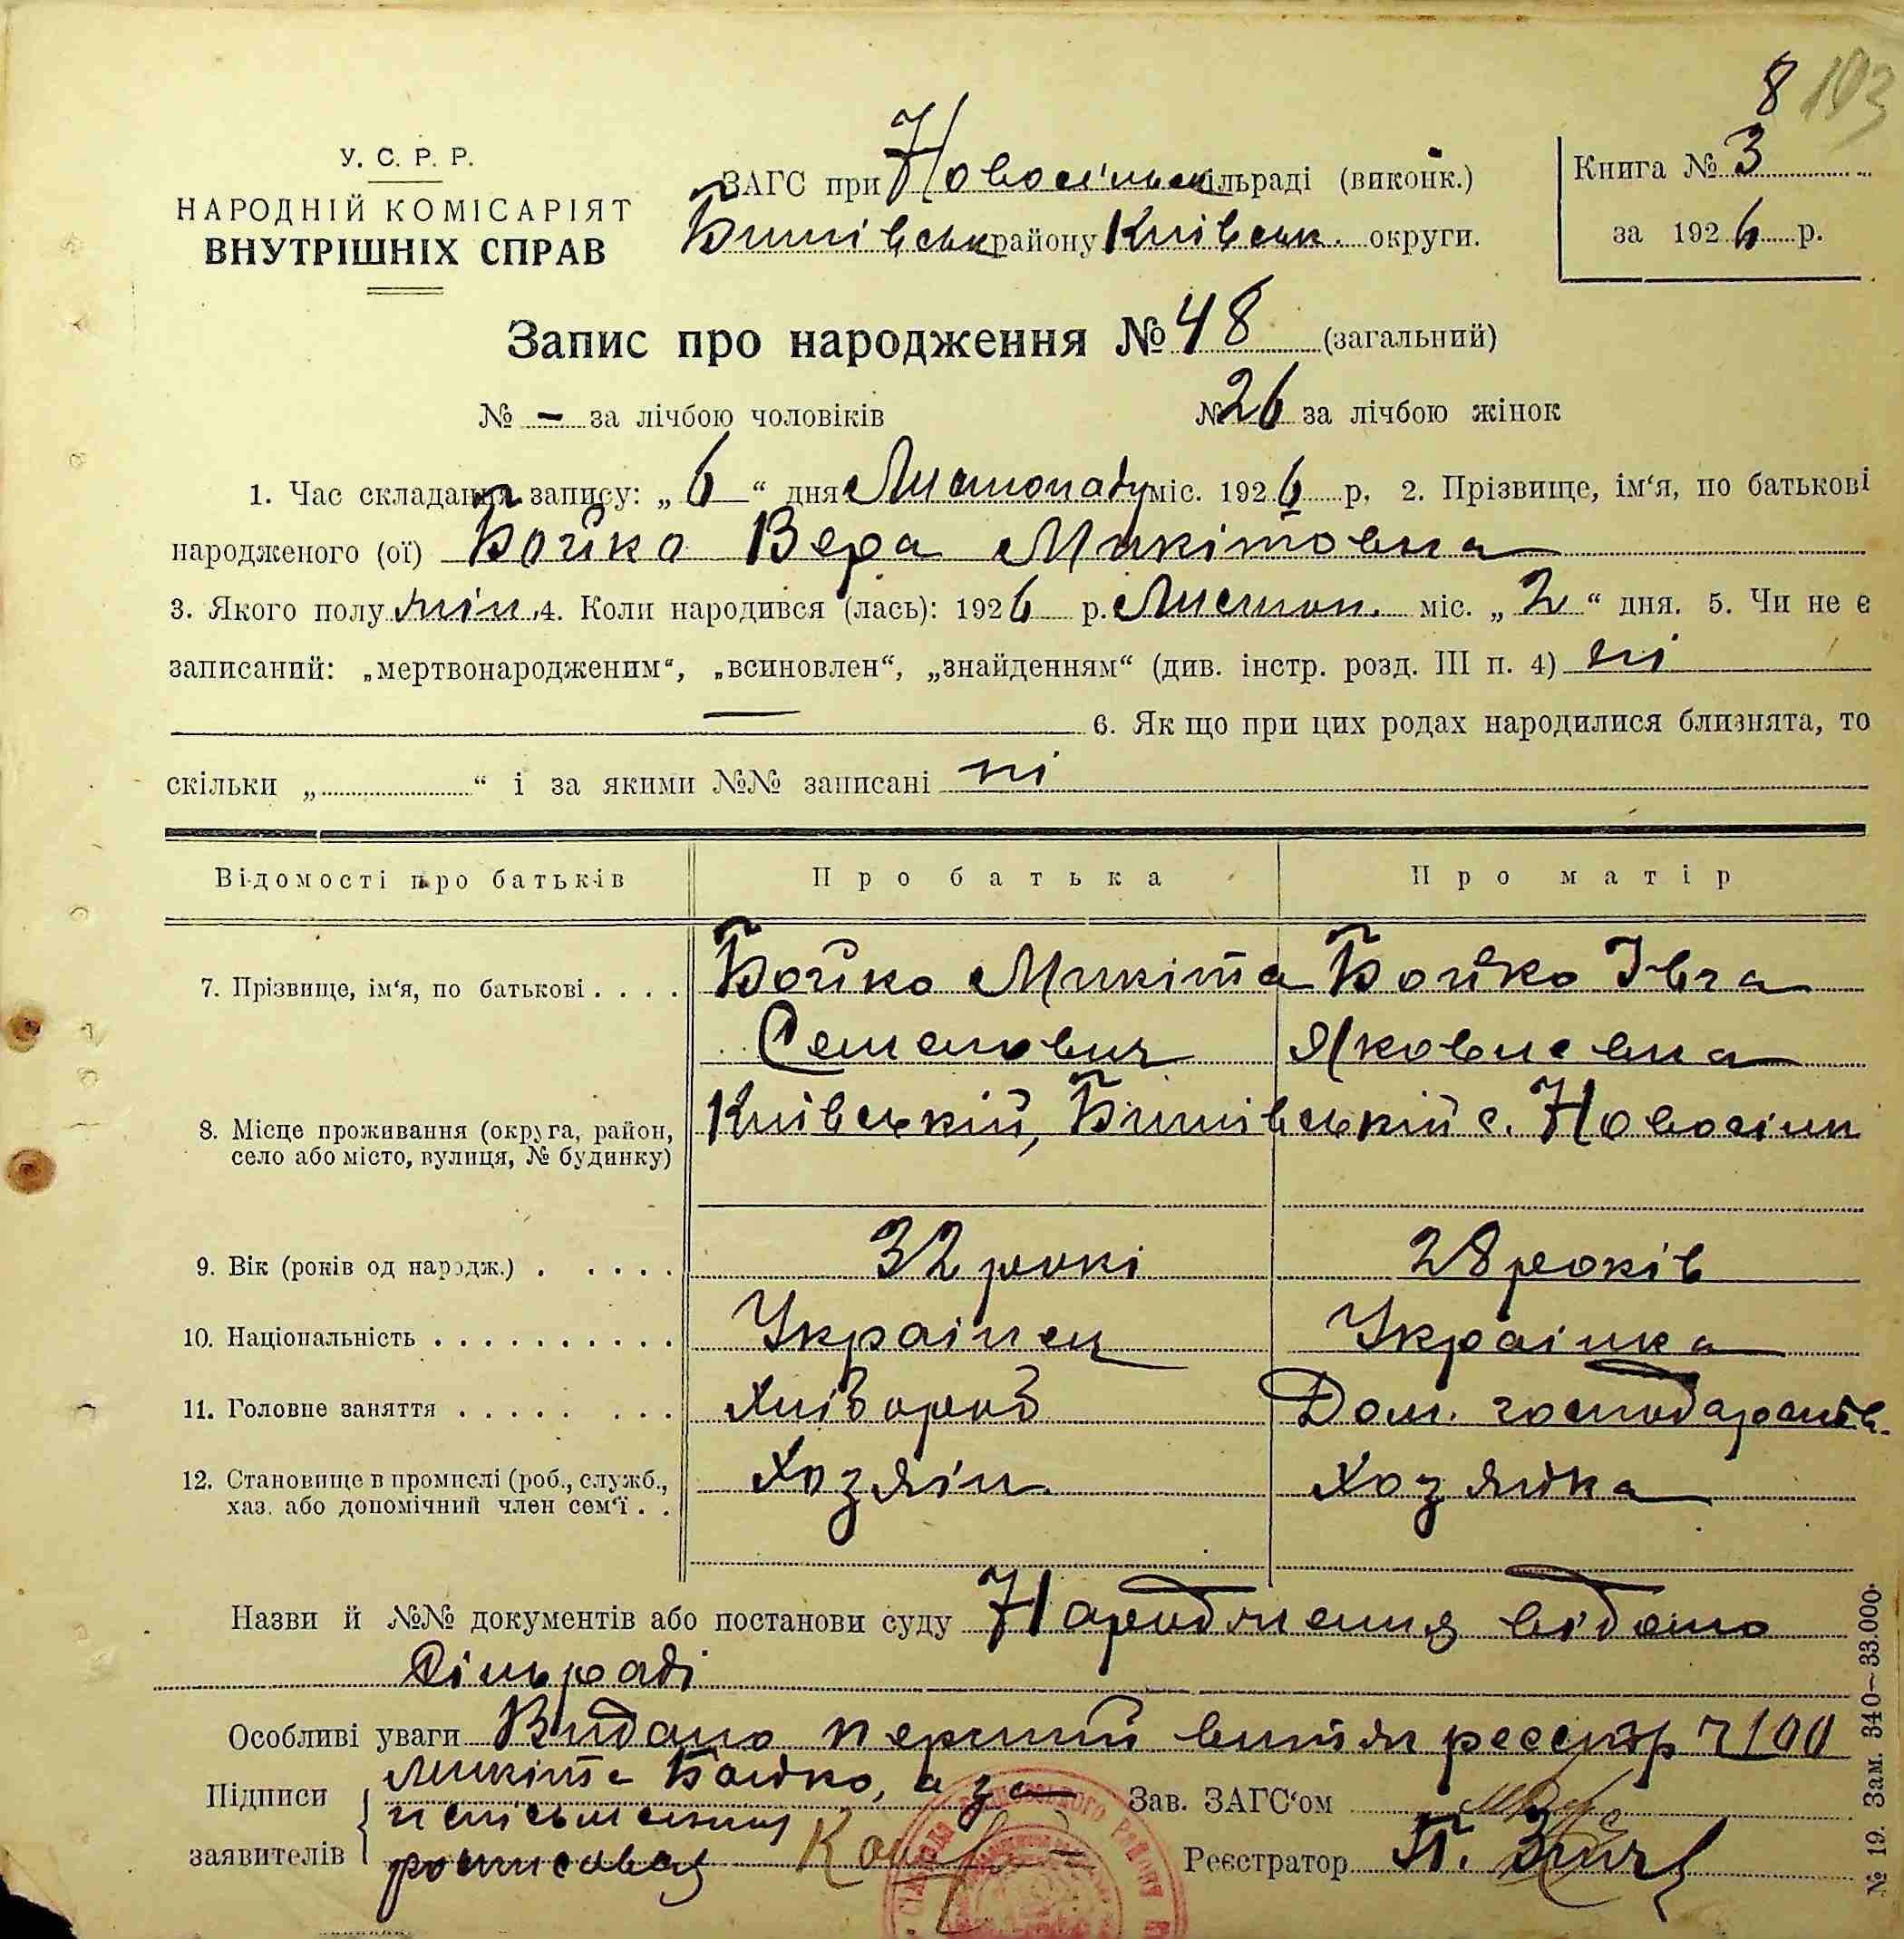 8 103
У. С. Р. Р.
НАРОДНІЙ КОМІСАРІЯТ
ВНУТРІШНІХ СПРАВ
ЗАГС при Новосільськ сільраді (виконк.)
Бишівськ району Київськ. округи.
Книга № 3
за 1926 р.
Запис про народження № 48 (загальний)
№ – за лічбою чоловіків № 26 за лічбою жінок
1. Час складання запису: „ 6 “ дня Листопаду міс. 1926 р. 2. Прізвище, ім‘я, по батькові
народженого (ої) Бойко Вера Микітовна
3. Якого полу жін. 4. Коли народився (лась): 1926 р. Листоп. міс. „ 2 “ дня. 5. Чи не є
записаний: „мертвонародженим“, „всиновлен“, „знайденням“ (див. інстр. розд. III п. 4) ні
— 6. Як що при цих родах народилися близнята, то
скільки „ “ і за якими №№ записані ні
Відомості про батьків Про батька Про матір
7. Прізвище, ім‘я, по батькові . . . . Бойко Микіта Бойко Івга
Семенович Яковлевна
8. Місце проживання (округа, район, село або місто, вулиця, № будинку) Київській, Бишівській с. Новосілк
9. Вік (років од народж.) . . . . . 32 рокі 28 років
10. Національність . . . . . . . . . . Украінец Украінка
11. Головне заняття . . . . . . . . Хлібороб Дом. господарств.
12. Становище в промислі (роб., служб., хаз. або допомічний член сем‘ї . . Хозяін Хозяйка
Назви й №№ документів або постанови суду Народження відомо
Сільраді
Особливі уваги Видано перший витяг реєстр 7/00
Підписи Микіта Бойко, а за Зав. ЗАГС‘ом
неписьменни
заявителів росписався Реєстратор П.
№ 19. Зам. 340—33.000.